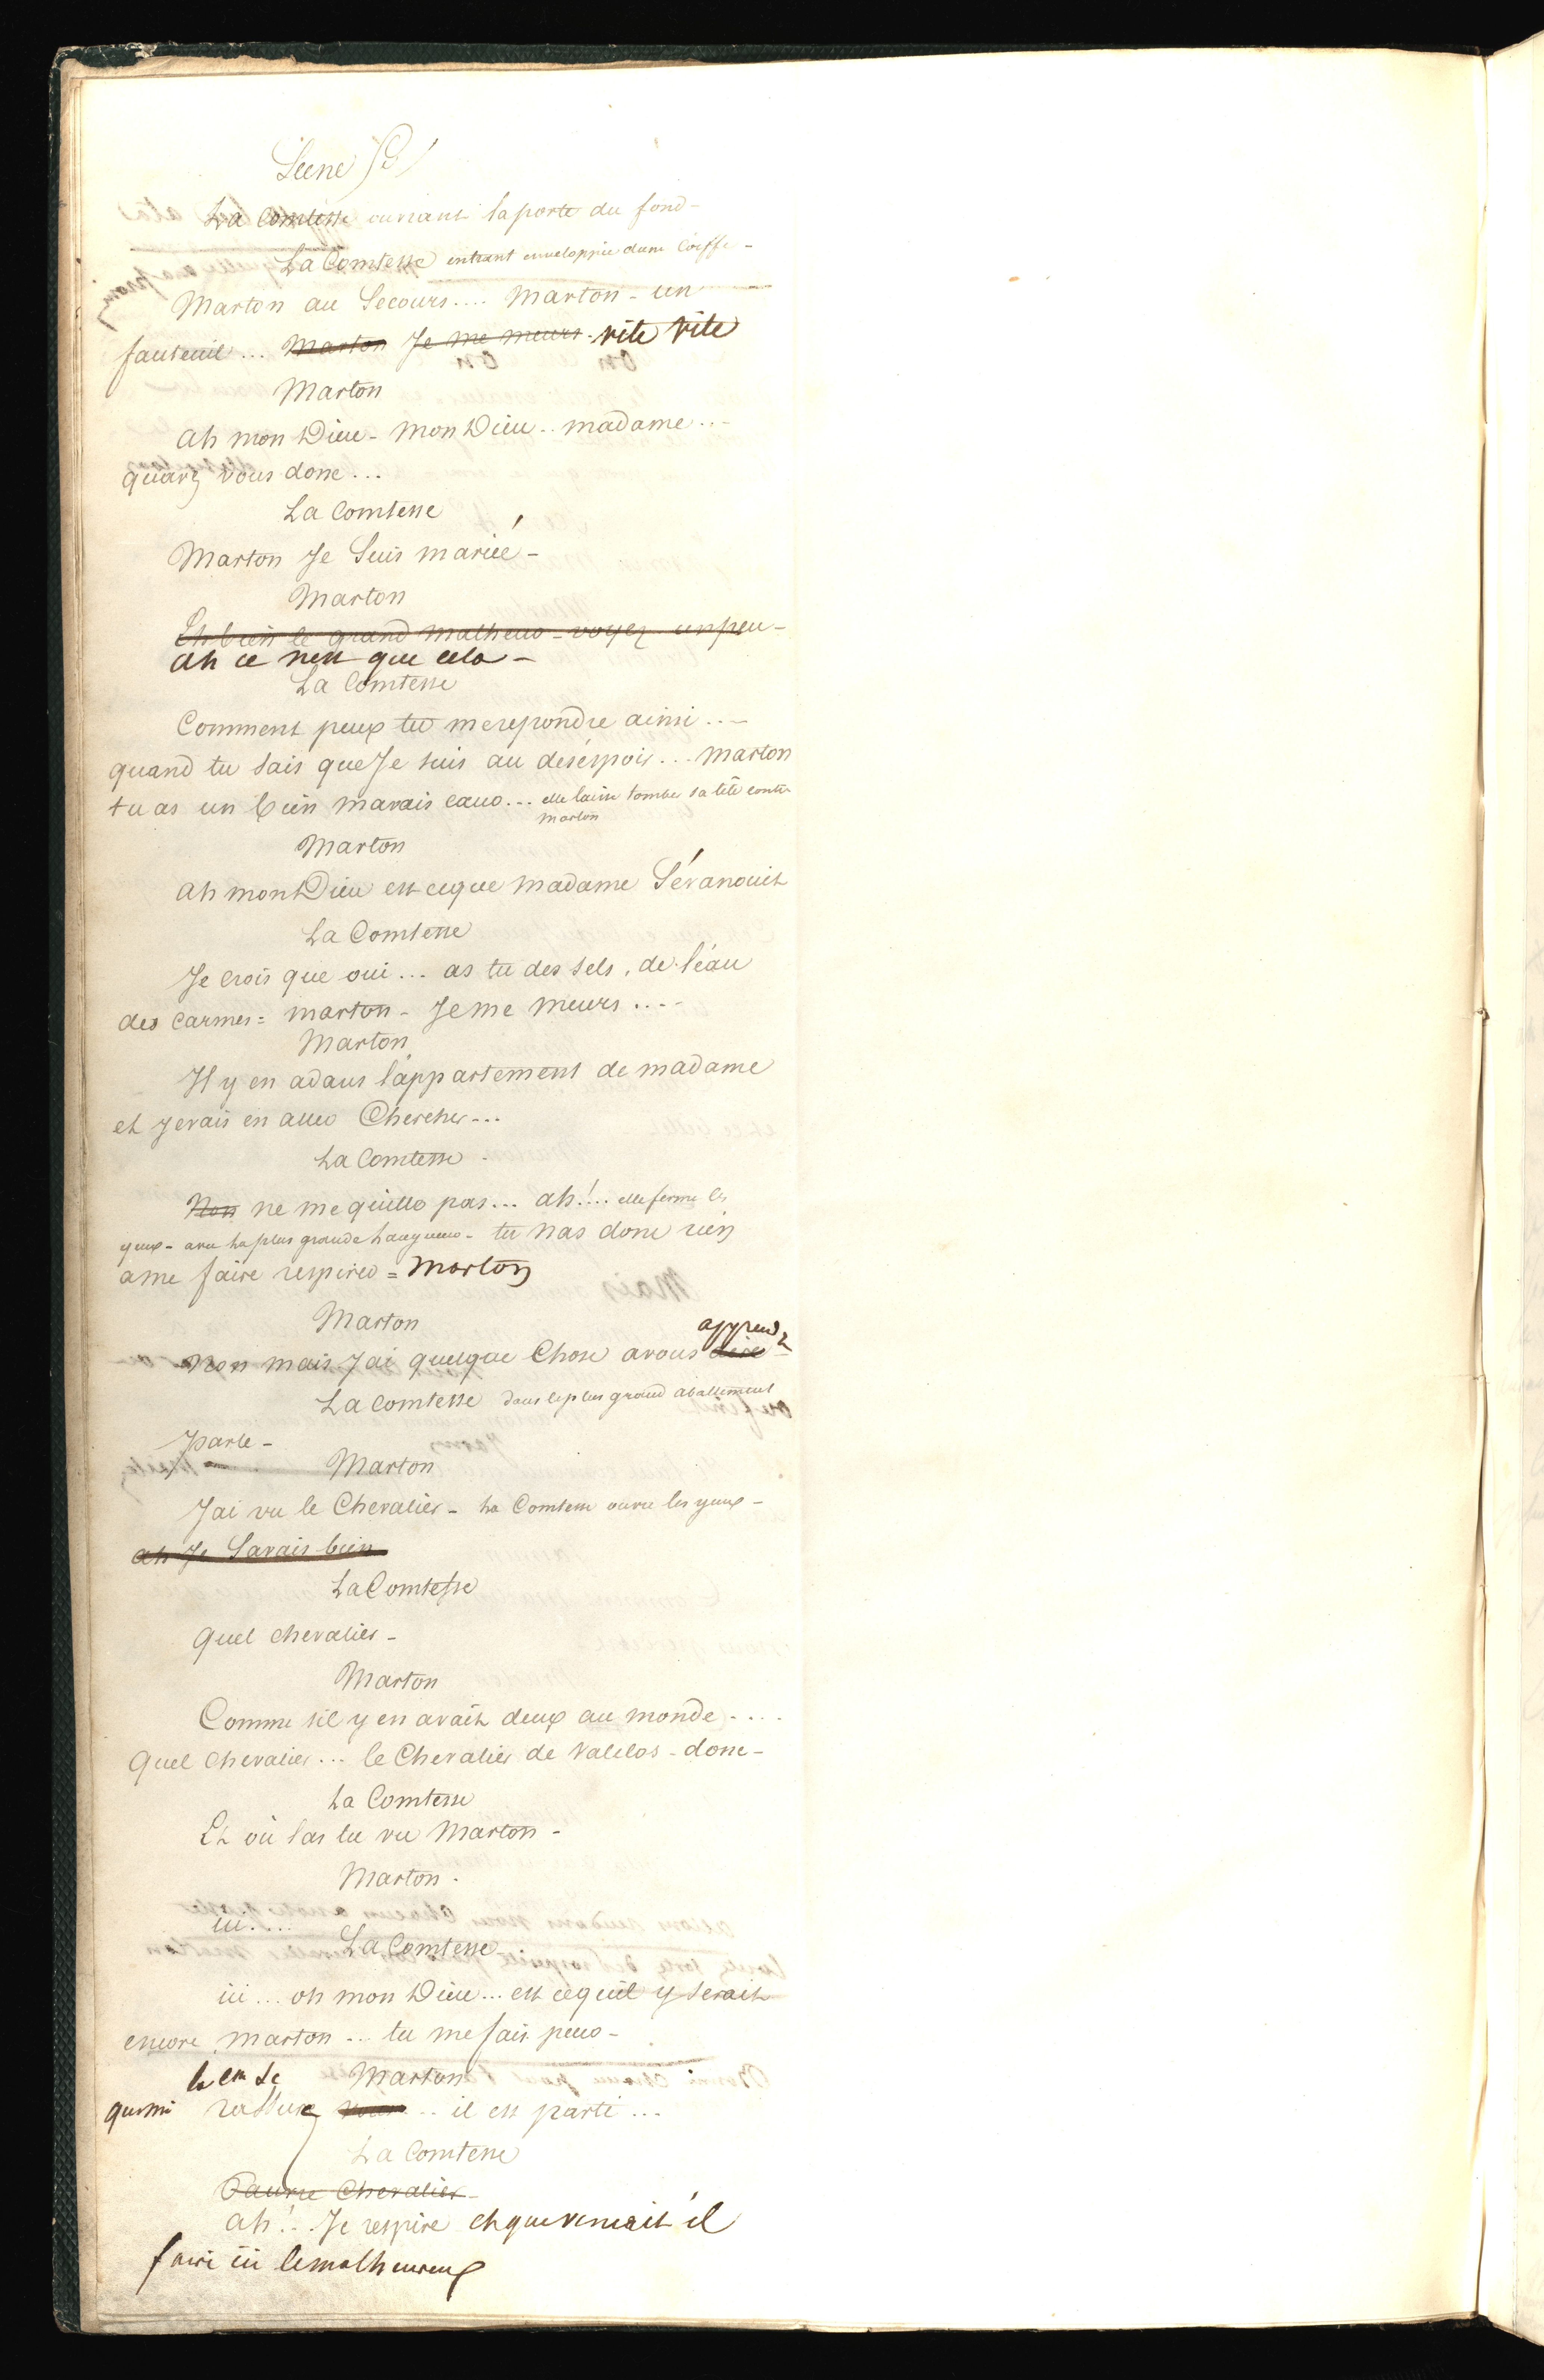 Scene
La Comtesse ouvrant la porte du fond -
La Comtesse entrant enveloppée dune Coiffe -
Marton au Secours.... Marton - un
fauteuil ... Marton Je me meurs - vite vite
Marton
ah mon Dieu - mon Dieu .. madame ...
quavez vous donc ...
La Comtesse
Marton Je Suis mariée -
Marton
Eh bien le grand malheur - voyez un peu -
ah ce nest que cela -
La Comtesse
Comment peux tu me repondre ainsi ...
quand tu sais que Je suis au désespoir ... Marton
tu as un bien mavais cœur ... elle laisse tomber sa tête contre
marton
Marton
ah mon Dieu est ce que madame Sévanouit
La Comtesse
Je crois que oui ... as tu des sels, de l'éau
des Carmes = marton - Je me meurs ....
Marton
Il y en a dans l'appartement de madame
et je vais en aller Chercher ...
La Comtesse -
Non ne me quitte pas ... ah! ... elle ferme les
yeux - avec la plus grande Langueur - tu nas donc rien
a me faire respirer = Marton
Marton
apprendre
Non mais J'ai quelque Chose a vous dire -
La comtesse dans le plus grand abattement
parle -
Marton
J'ai vu le Chevalier - La Comtesse ouvre les yeux -
ah Je Savais bien
La Comtesse
Quel chevalier -
Marton
Comme sil y en avait deux au monde ....
Quel chevalier ... le Chevalier de Valclos - donc -
La Comtesse
Et où las tu vu Marton -
Marton -
ici ....
La Comtesse
ici ... oh mon Dieu ... est ce quil y serait
encore Marton ... tu me fais peur -
Marton
rassurez vous .. il est parti ...
La Comtesse
Pauvre Chevalier -
ah! .. Je respire et que venait il
faire ici le malheureux